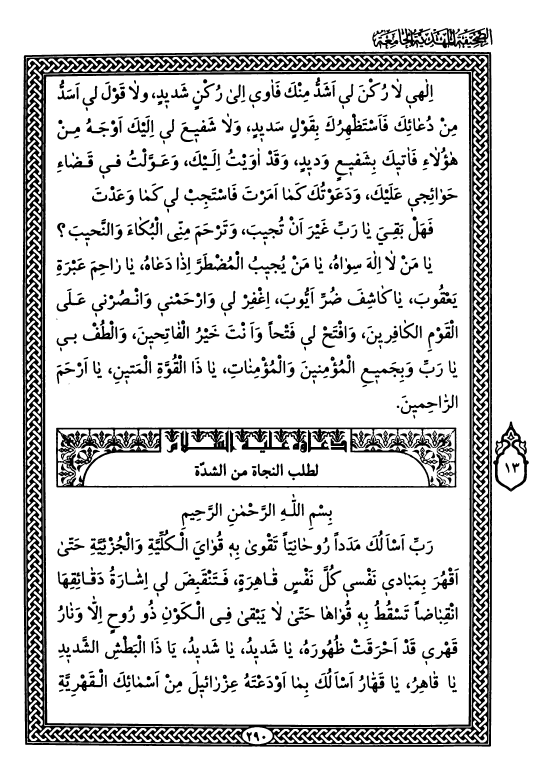 الصحيفة المهدية الجامعة
اِلٰهي لاٰ رُكْنَ لي اَشَدُّ مِنْكَ فَاٰوي اِلىٰ رُكْنٍ شَديدٍ، وَلاٰ قَوْلَ لي اَسَدُّ
مِنْ دُعٰائِكَ فَاَسْتَظْهِرُكَ بِقَوْلٍ سَديدٍ، وَلاٰ شَفيعَ لي اِلَيْكَ اَوْجَهُ مِنْ
هٰؤُلاٰءِ فَاٰتيكَ بِشَفيعٍ وَديدٍ، وَقَدْ اَوَيْتُ اِلَيْكَ، وَعَوَّلْتُ في قَضٰاءِ
حَوٰائِجي عَلَيْكَ، وَدَعَوْتُكَ كَمٰا اَمَرْتَ فَاسْتَجِبْ لي كَمٰا وَعَدْتَ
فَهَلْ بَقِيَ يٰا رَبِّ غَيْرَ اَنْ تُجيبَ، وَتَرْحَمَ مِنِّى الْبُكٰاءَ وَالنَّحيبَ؟
يٰا مَنْ لاٰ اِلٰهَ سِوٰاهُ، يٰا مَنْ يُجيبُ الْمُضْطَرَّ اِذٰا دَعٰاهُ، يٰا رٰاحِمَ عَبْرَةِ
يَعْقُوبَ، يٰا كٰاشِفَ ضُرِّ اَيُّوبَ، اِغْفِرْ لي وَارْحَمْني وَانْصُرْني عَلَى
الْقَوْمِ الكٰافِرينَ، وَافْتَحْ لي فَتْحاً وَاَنْتَ خَيْرُ الْفٰاتِحينَ، وَالْطُفْ بي
يٰا رَبِّ وَبِجَميعِ الْمُؤْمِنينَ وَالْمُؤْمِنٰاتِ، يٰا ذَا الْقُوَّةِ الْمَتينِ، يٰا اَرْحَمَ
الرّٰاحِمينَ.
دعاؤه عليه السلام
لطلب النجاة من الشدّة
١٣
بِسْمِ اللَّـهِ الرَّحْمٰنِ الرَّحيمِ
رَبِّ اَسْاَلُكَ مَدَداً رُوحٰانِيّاً تَقْوىٰ بِهِ قُوٰايَ الْكُلِّيَّةِ وَالْجُزْئِيَّةِ حَتّىٰ
اَقْهَرَ بِمَبٰادي نَفْسي كُلَّ نَفْسٍ قٰاهِرَةٍ، فَتَنْقَبِضَ لي اِشٰارَةُ دَقٰائِقِهٰا
انْقِبٰاضاً تَسْقُطُ بِهِ قُوٰاهٰا حَتّىٰ لاٰ يَبْقىٰ فِى الْكَوْنِ ذُو رُوحٍ اِلّٰا وَنٰارُ
قَهْري قَدْ اَحْرَقَتْ ظُهُورَهُ، يٰا شَديدُ، يٰا شَديدُ، يٰا ذَا الْبَطْشِ الشَّديدِ
يٰا قٰاهِرُ، يٰا قَهّٰارُ اَسْاَلُكَ بِمٰا اَوْدَعْتَهُ عِزْرٰائيلَ مِنْ اَسْمٰائِكَ الْقَهْرِيَّةِ
٢٩٠